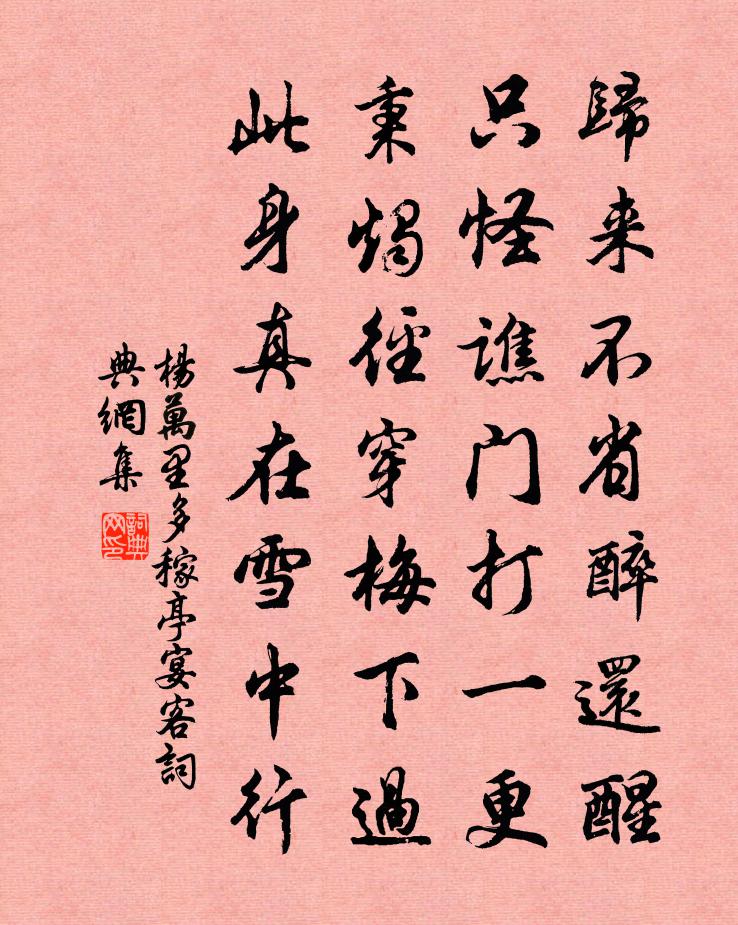 歸来不省醉還醒
只怪譙门打一更
秉燭徑穿梅下過
此身真在雪中行
楊萬里多稼亭宴客詞
典網集
詞典
网印